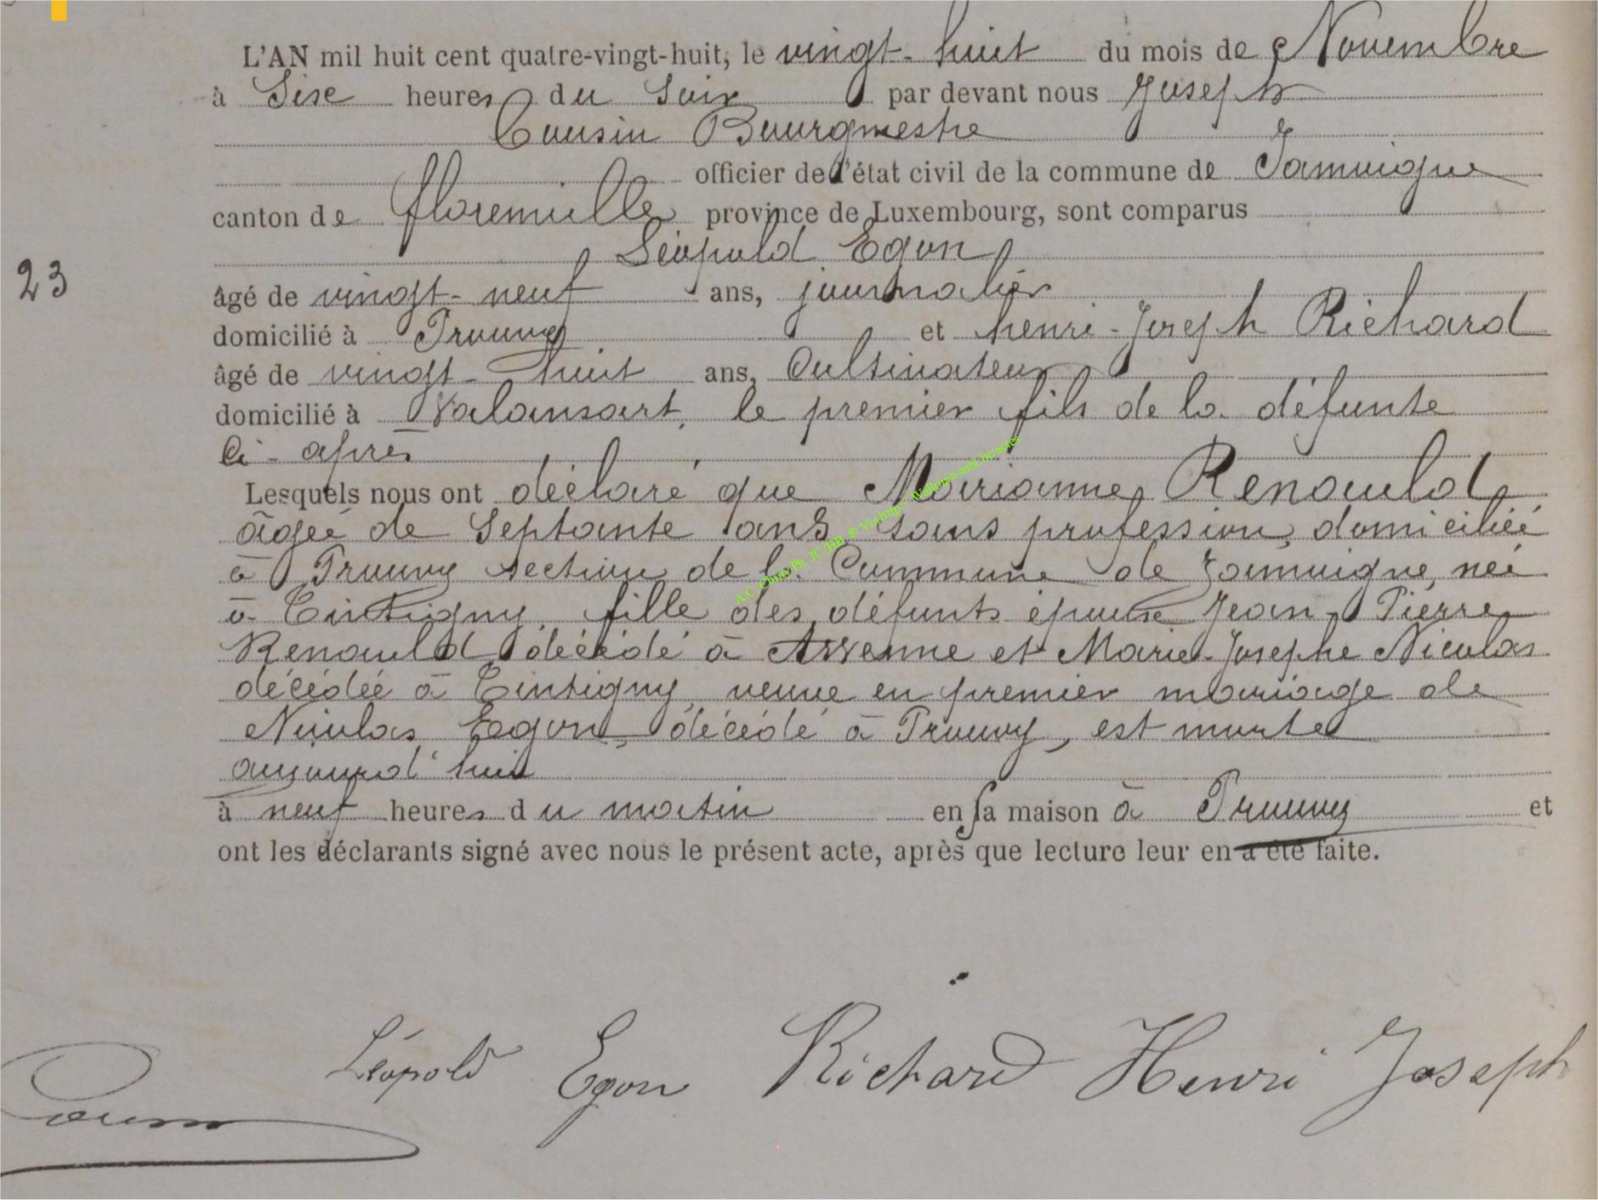 L'AN mil huit cent quatre-vingt-huit, le vingt-huit du mois de Novembre
à Sise heures du Soir par devant nous Joseph
Cousin Bourgmestre
officier de l'état civil de la commune de Jamoigne
canton de florenville province de Luxembourg, sont comparus
Léopold Egon
23
âgé de vingt-neuf ans, journalier
domicilié à Prouvy et henri-Joseph Richard
âgé de vingt-huit ans, Cultivateur
domicilié à Valansart, le premier fils de la défunte
Ci-après
Lesquels nous ont déclaré que Marianne Renauld
âgée de Septante ans sans profession, domiciliée
à Prouvy section de la Commune de Jamoigne, née
à Tintigny, fille des défunts époux Jean-Pierre
Renauld décédé à Ansenne et Marie-Josephe Nicolas
décédée à Tintigny, veuve en premier mariage de
Nicolas Egon, décédé à Prouvy, est morte
aujourd'hui
à neuf heures du matin en sa maison à Prouvy et
ont les déclarants signé avec nous le présent acte, après que lecture leur en a été faite.
Léopold Egon Richard Henri Joseph
Cousin